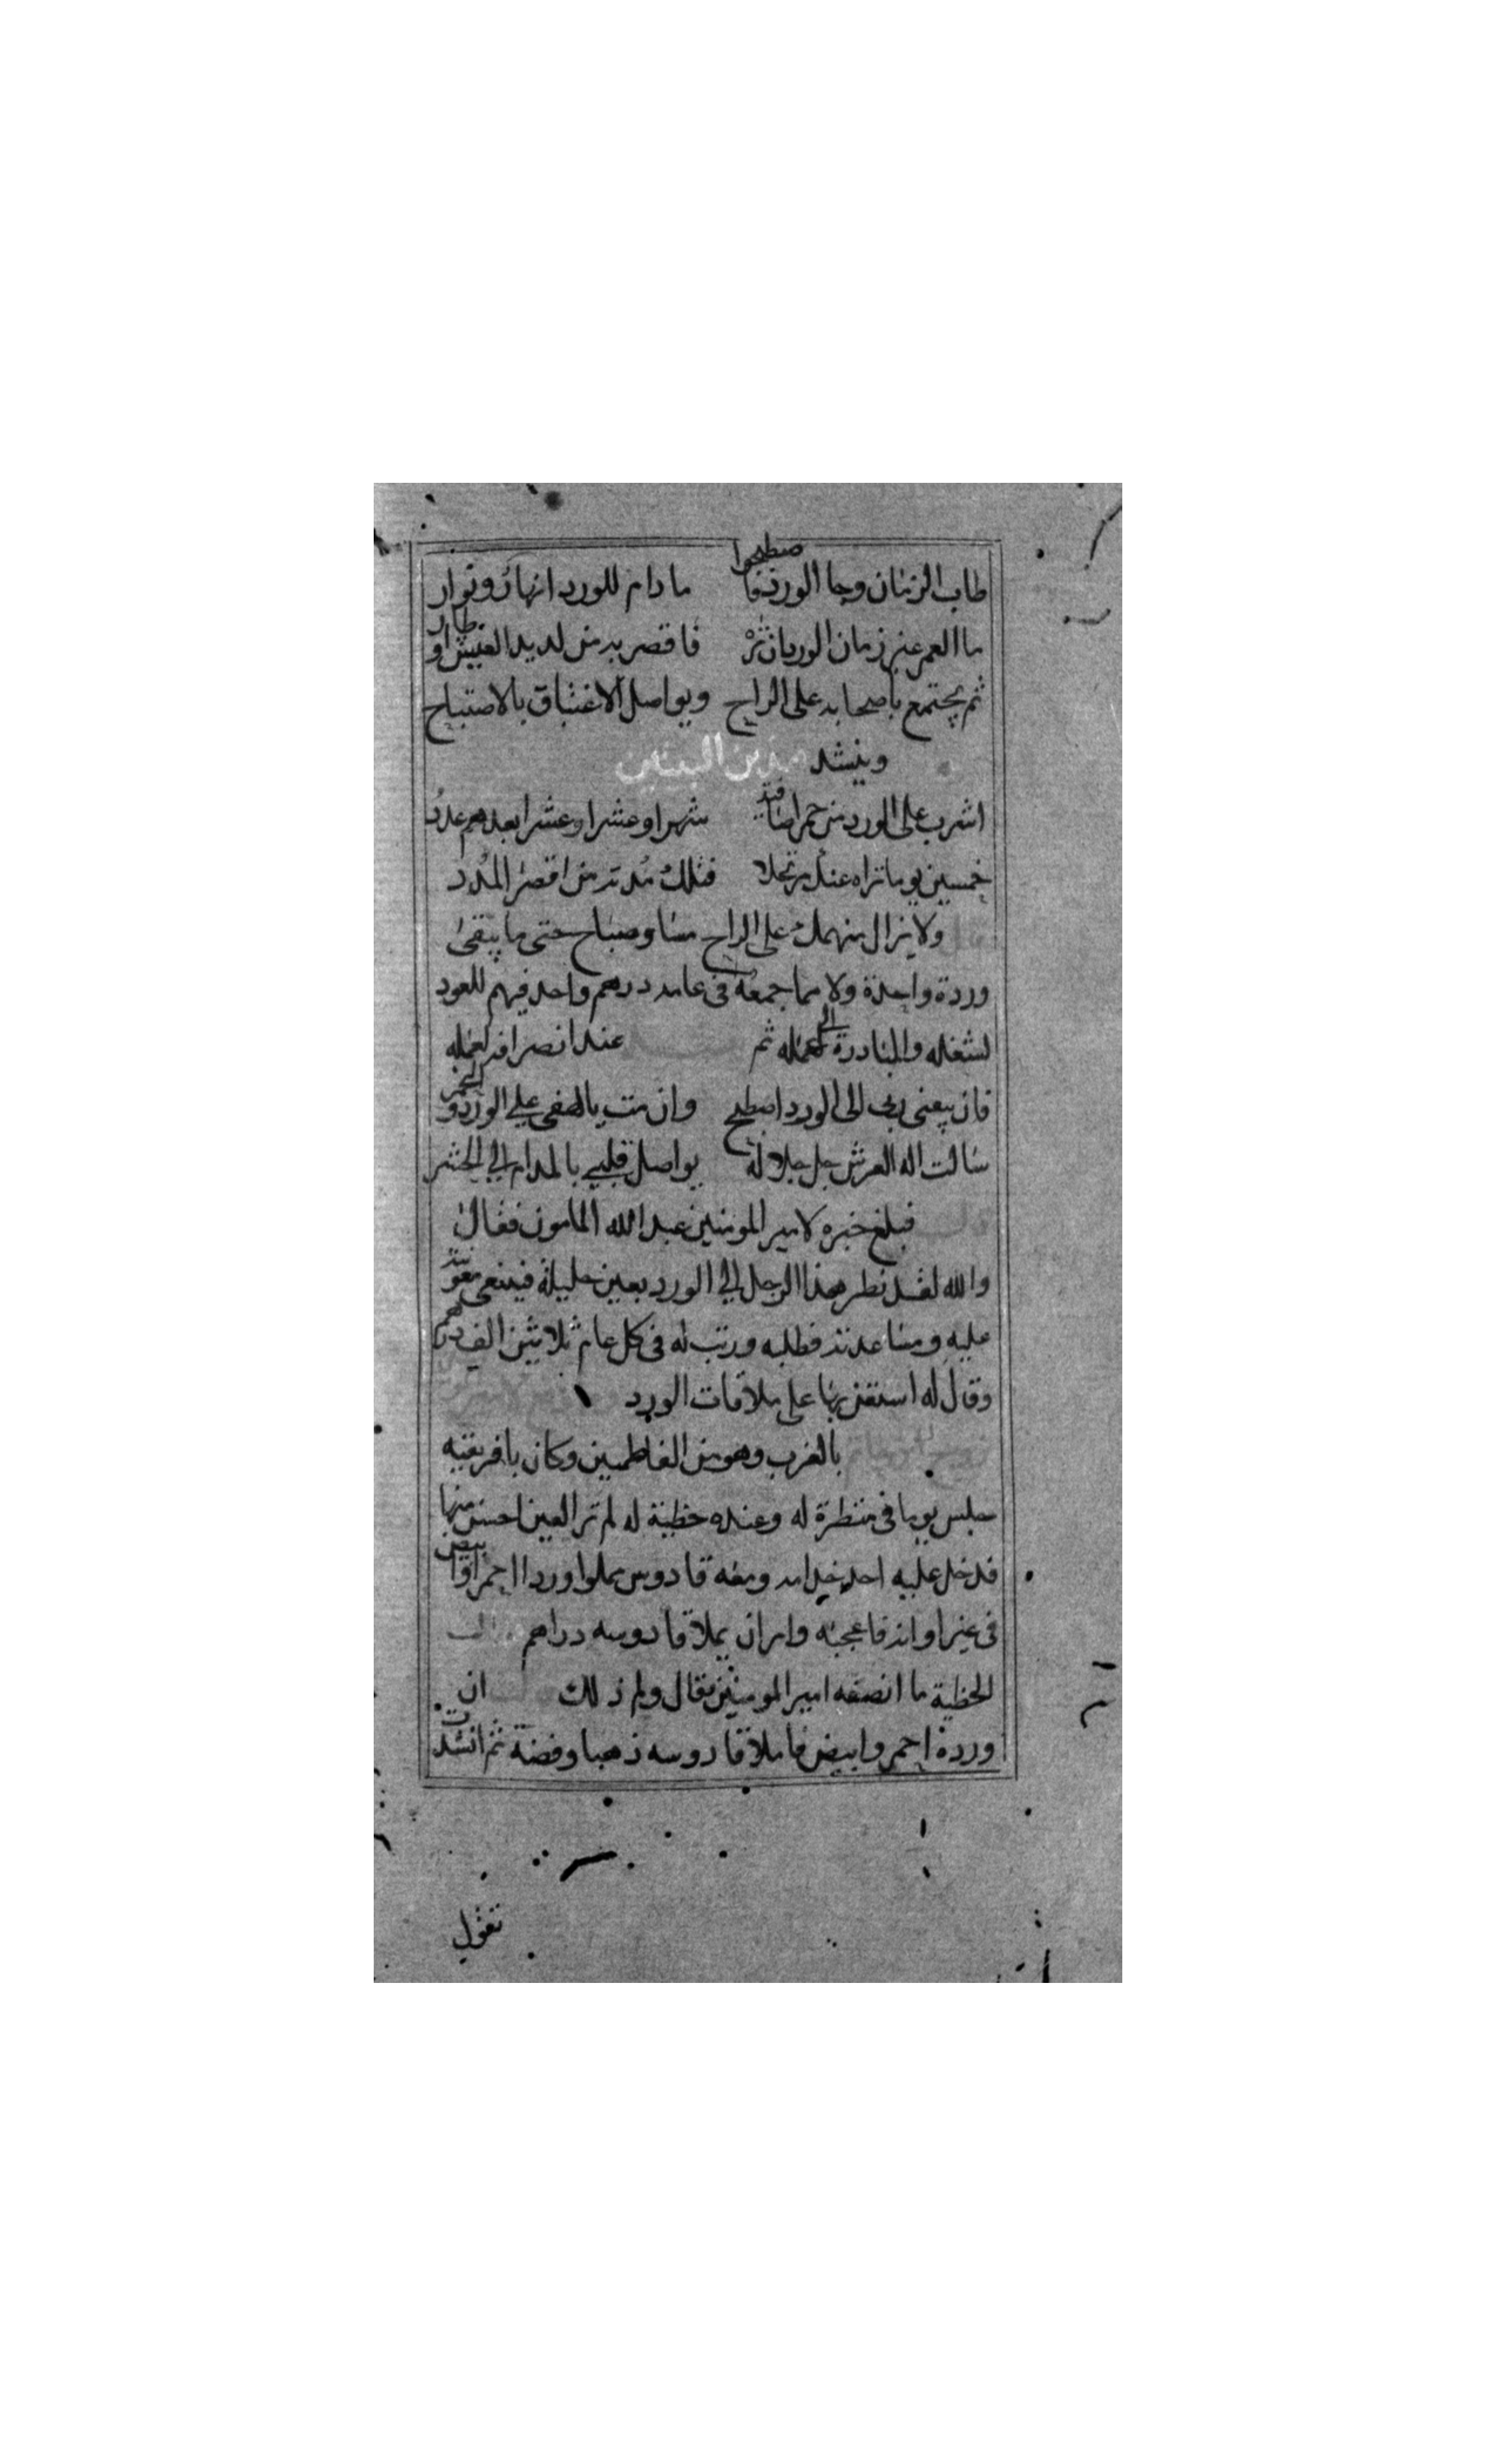 طاب الزمان وجا الورد فاصطبحوا ما دام للورد ازهار ونوار
ما العمر غير زمان الورد فاقصر به من لديد العيش اوطار
ثم يجتمع باصحابه على الراح ويواصل الاغتباق بالاصتباح
وينشد هذين البيتين
اشرب على الورد من حمرا صافية شهرا وعشرا وعشرا بعدهم عدد
خمسين يوما تراه عندك مرتحلا فتلك مدته من اقصر المدد
ولا يزال منهمك على الراح مسا وصباح حتى ما يبقى
وردة واحدة ولا مما جمعه في عامه درهم واحد فيهم للعود
لشغله والمبادرة الى عمله ثم عند انصرافه لعمله
فان يبقني ربي الى الورد اصطبح وان مت يالهفي علي الورد والخمر
سالت اله العرش جل جلاله يواصل قلبي بالمدام الي الحشر
فبلغ خبره لامير المومنين عبد الله المامون فقال
والله لقد نظر هذا الرجل الي الورد بعين جليلة فينبغي معونته
عليه ومساعدته فطلبه ورتب له في كل عام ثلاثين الف درهم
وقال له استعن بها على ملاقات الورد
بالغرب وهو من الفاطميين وكان بافريقيه
جلس يوما في منظرة له وعنده حظية له لم تر العين احسن منها
فدخل عليه احد خدامه ومعه قادوس مملوا وردا احمر وابيض
في غير اوانه فاعجبه وامر ان يملا قادوسه دراهم
الحظية ما انصفه امير المومنين فقال ولم ذلك ان
وردة احمر وابيض فاملا قادوسه ذهبا وفضة ثم انشدت
تقول